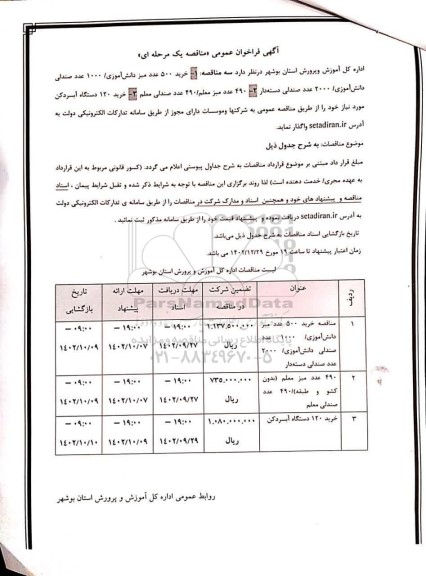 آگهی فراخوان عمومی «مناقصه یک مرحله ای»
اداره کل آموزش وپرورش استان بوشهر درنظر دارد سه مناقصه: 1- خرید ۵۰۰ عدد میز دانش‌آموزی/ ۱۰۰۰ عدد صندلی
دانش‌آموزی/ ۲۰۰۰ عدد صندلی دسته‌دار 2- ۴۹۰ عدد میز معلم/۴۹۰ عدد صندلی معلم 3- خرید ۱۲۰ دستگاه آبسردکن
مورد نیاز خود را از طریق مناقصه عمومی به شرکتها وموسسات دارای مجوز از طریق سامانه تدارکات الکترونیکی دولت به
آدرس setadiran.ir واگذار نماید.
موضوع مناقصات: به شرح جدول ذیل
مبلغ قرار داد مبتنی بر موضوع قرارداد مناقصات به شرح جداول پیوستی اعلام می گردد. (کسور قانونی مربوط به این قرارداد
به عهده مجری/ خدمت دهنده است) لذا روند برگزاری این مناقصه با توجه به شرایط ذکر شده و تقبل شرایط پیمان ، اسناد
مناقصه و پیشنهاد های خود و همچنین اسناد و مدارک شرکت در مناقصات را از طریق سامانه ی تدارکات الکترونیکی دولت
به آدرس setadiran.ir دریافت نموده و پیشنهاد قیمت خود را از طریق سامانه مذکور ثبت نمائید .
تاریخ بازگشایی اسناد مناقصات به شرح جدول ذیل می‌باشد.
زمان اعتبار پیشنهاد تا ساعت ۱۹ مورخ ۱۴۰۲/۱۲/۲۹ می باشد.
لیست مناقصات اداره کل آموزش و پرورش استان بوشهر
ردیف عنوان تضمین شرکت در مناقصه مهلت دریافت اسناد مهلت ارائه پیشنهاد تاریخ بازگشایی
۱ مناقصه خرید ۵۰۰ عدد میز ۱.۱۳۷.۵۰۰.۰۰۰ ۱۹:۰۰ – ۱۹:۰۰ – ۰۹:۰۰ –
دانش‌آموزی/ ۱۰۰۰ عدد ریال ۱۴۰۲/۰۹/۲۷ ۱۴۰۲/۱۰/۰۷ ۱۴۰۲/۱۰/۰۹
صندلی دانش‌آموزی/ ۲۰۰۰
عدد صندلی دسته‌دار
۲ ۴۹۰ عدد میز معلم (بدون ۷۳۵.۰۰۰.۰۰۰ ۱۹:۰۰ – ۱۹:۰۰ – ۰۹:۰۰ –
کشو و طبقه)/۴۹۰ عدد ریال ۱۴۰۲/۰۹/۲۷ ۱۴۰۲/۱۰/۰۷ ۱۴۰۲/۱۰/۰۹
صندلی معلم
۳ خرید ۱۲۰ دستگاه آبسردکن ۱.۰۸۰.۰۰۰.۰۰۰ ۱۹:۰۰ – ۱۹:۰۰ – ۰۹:۰۰ –
ریال ۱۴۰۲/۰۹/۲۹ ۱۴۰۲/۱۰/۰۹ ۱۴۰۲/۱۰/۱۰
ParsNamadData
۰۲۱-۸۸۳۴۹۶۷۰-۵
روابط عمومی اداره کل آموزش و پرورش استان بوشهر